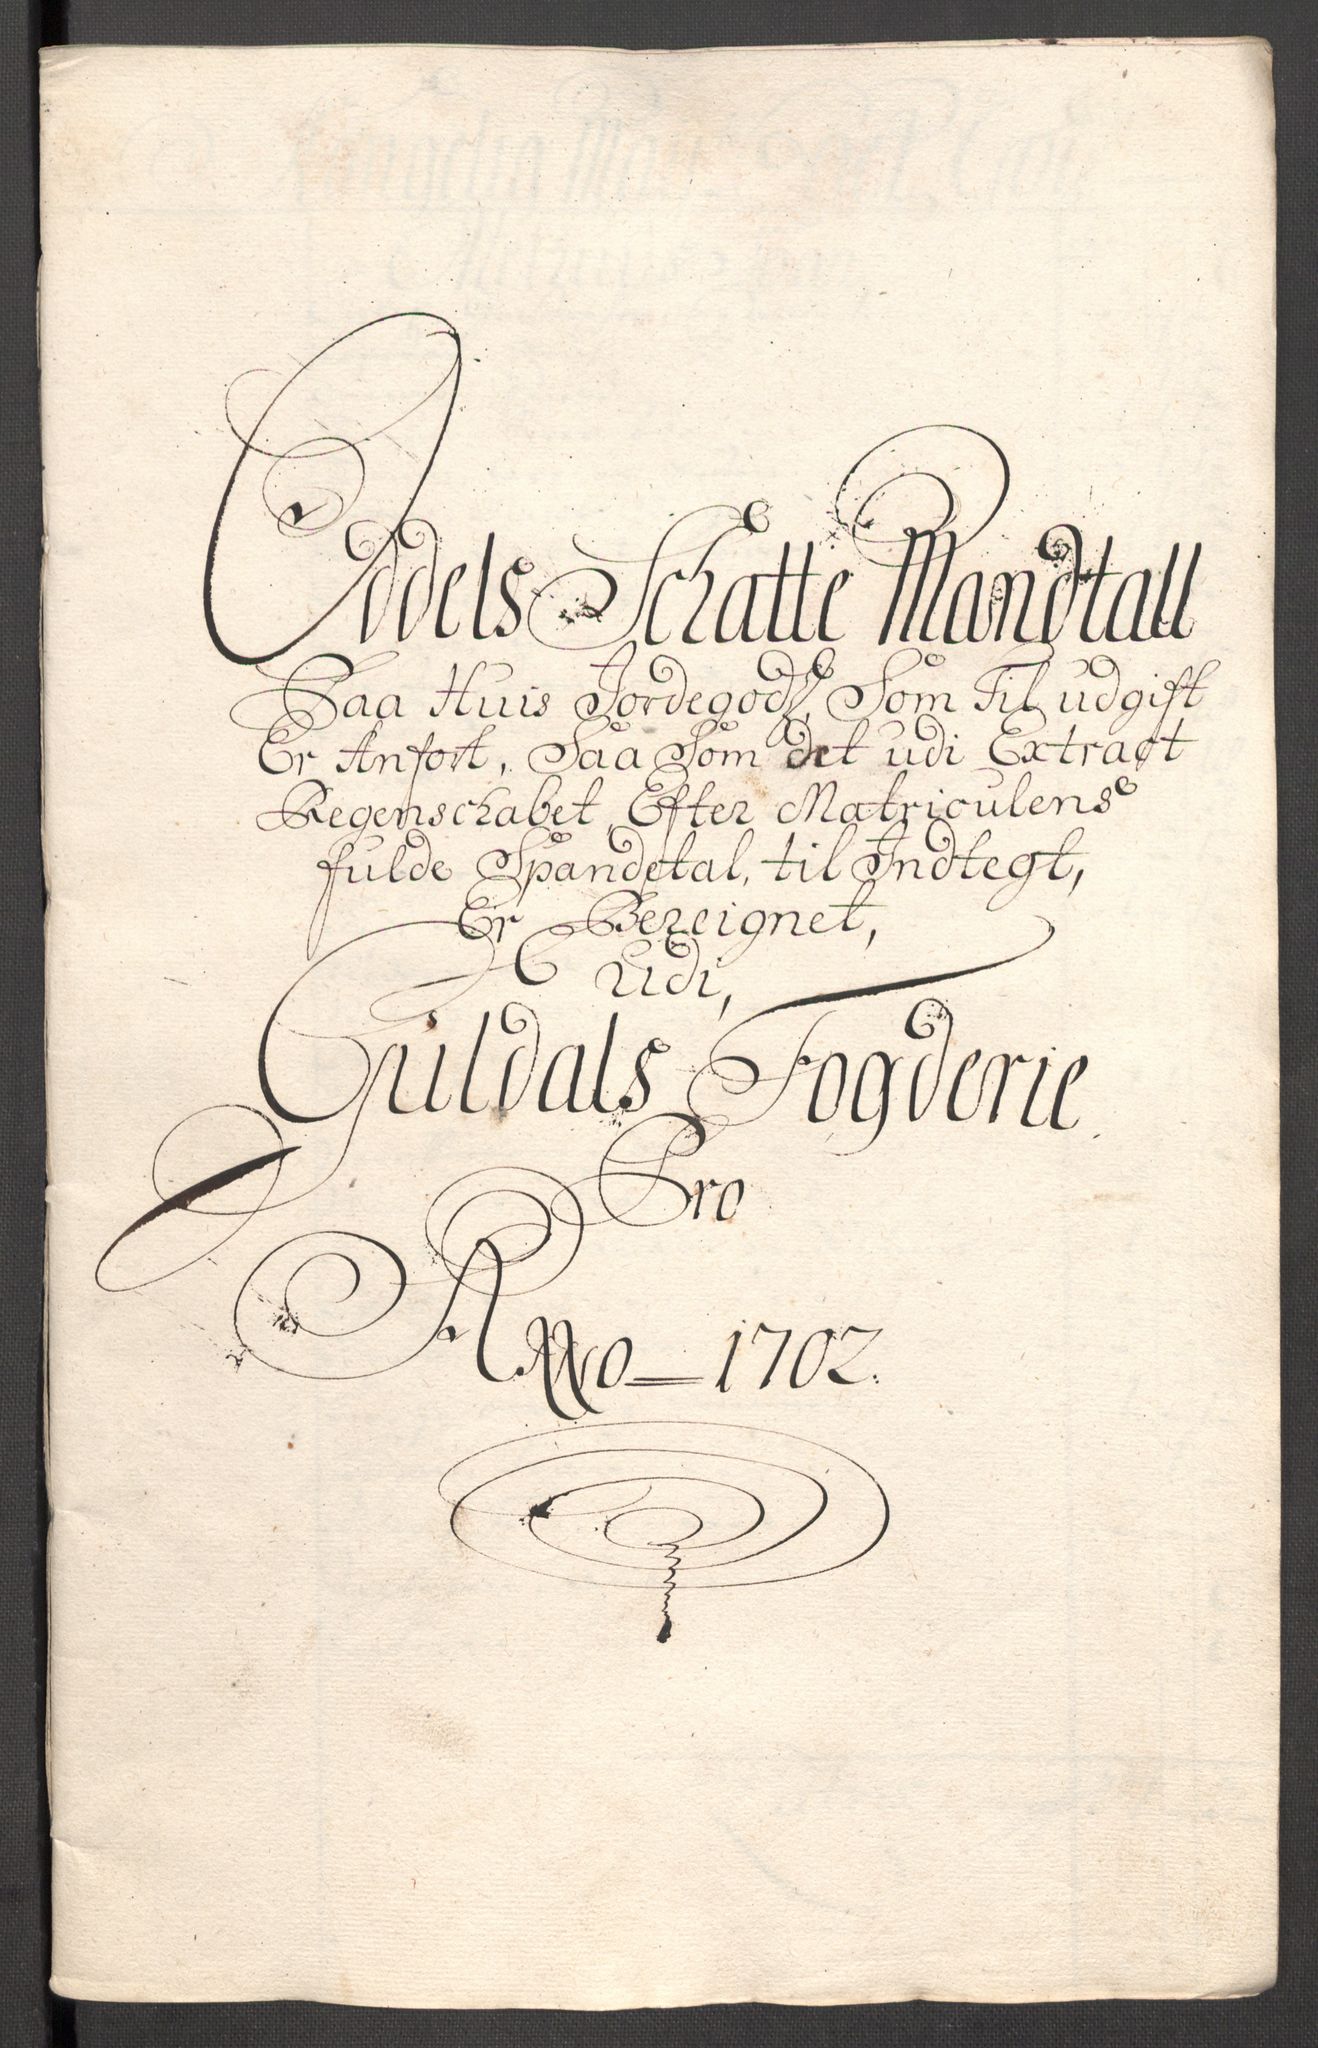 Oddels Schatte Mandtall
Paa Huis Jordegods, Som Til udgift
Er Anført, Saa Som det udi Extract
Regenschabet, Efter Matriculens
fulde Spandetal, til Indtegt,
Er Bereignet,
udi,
Guldals Fogderie
Pro
Anno 1702.